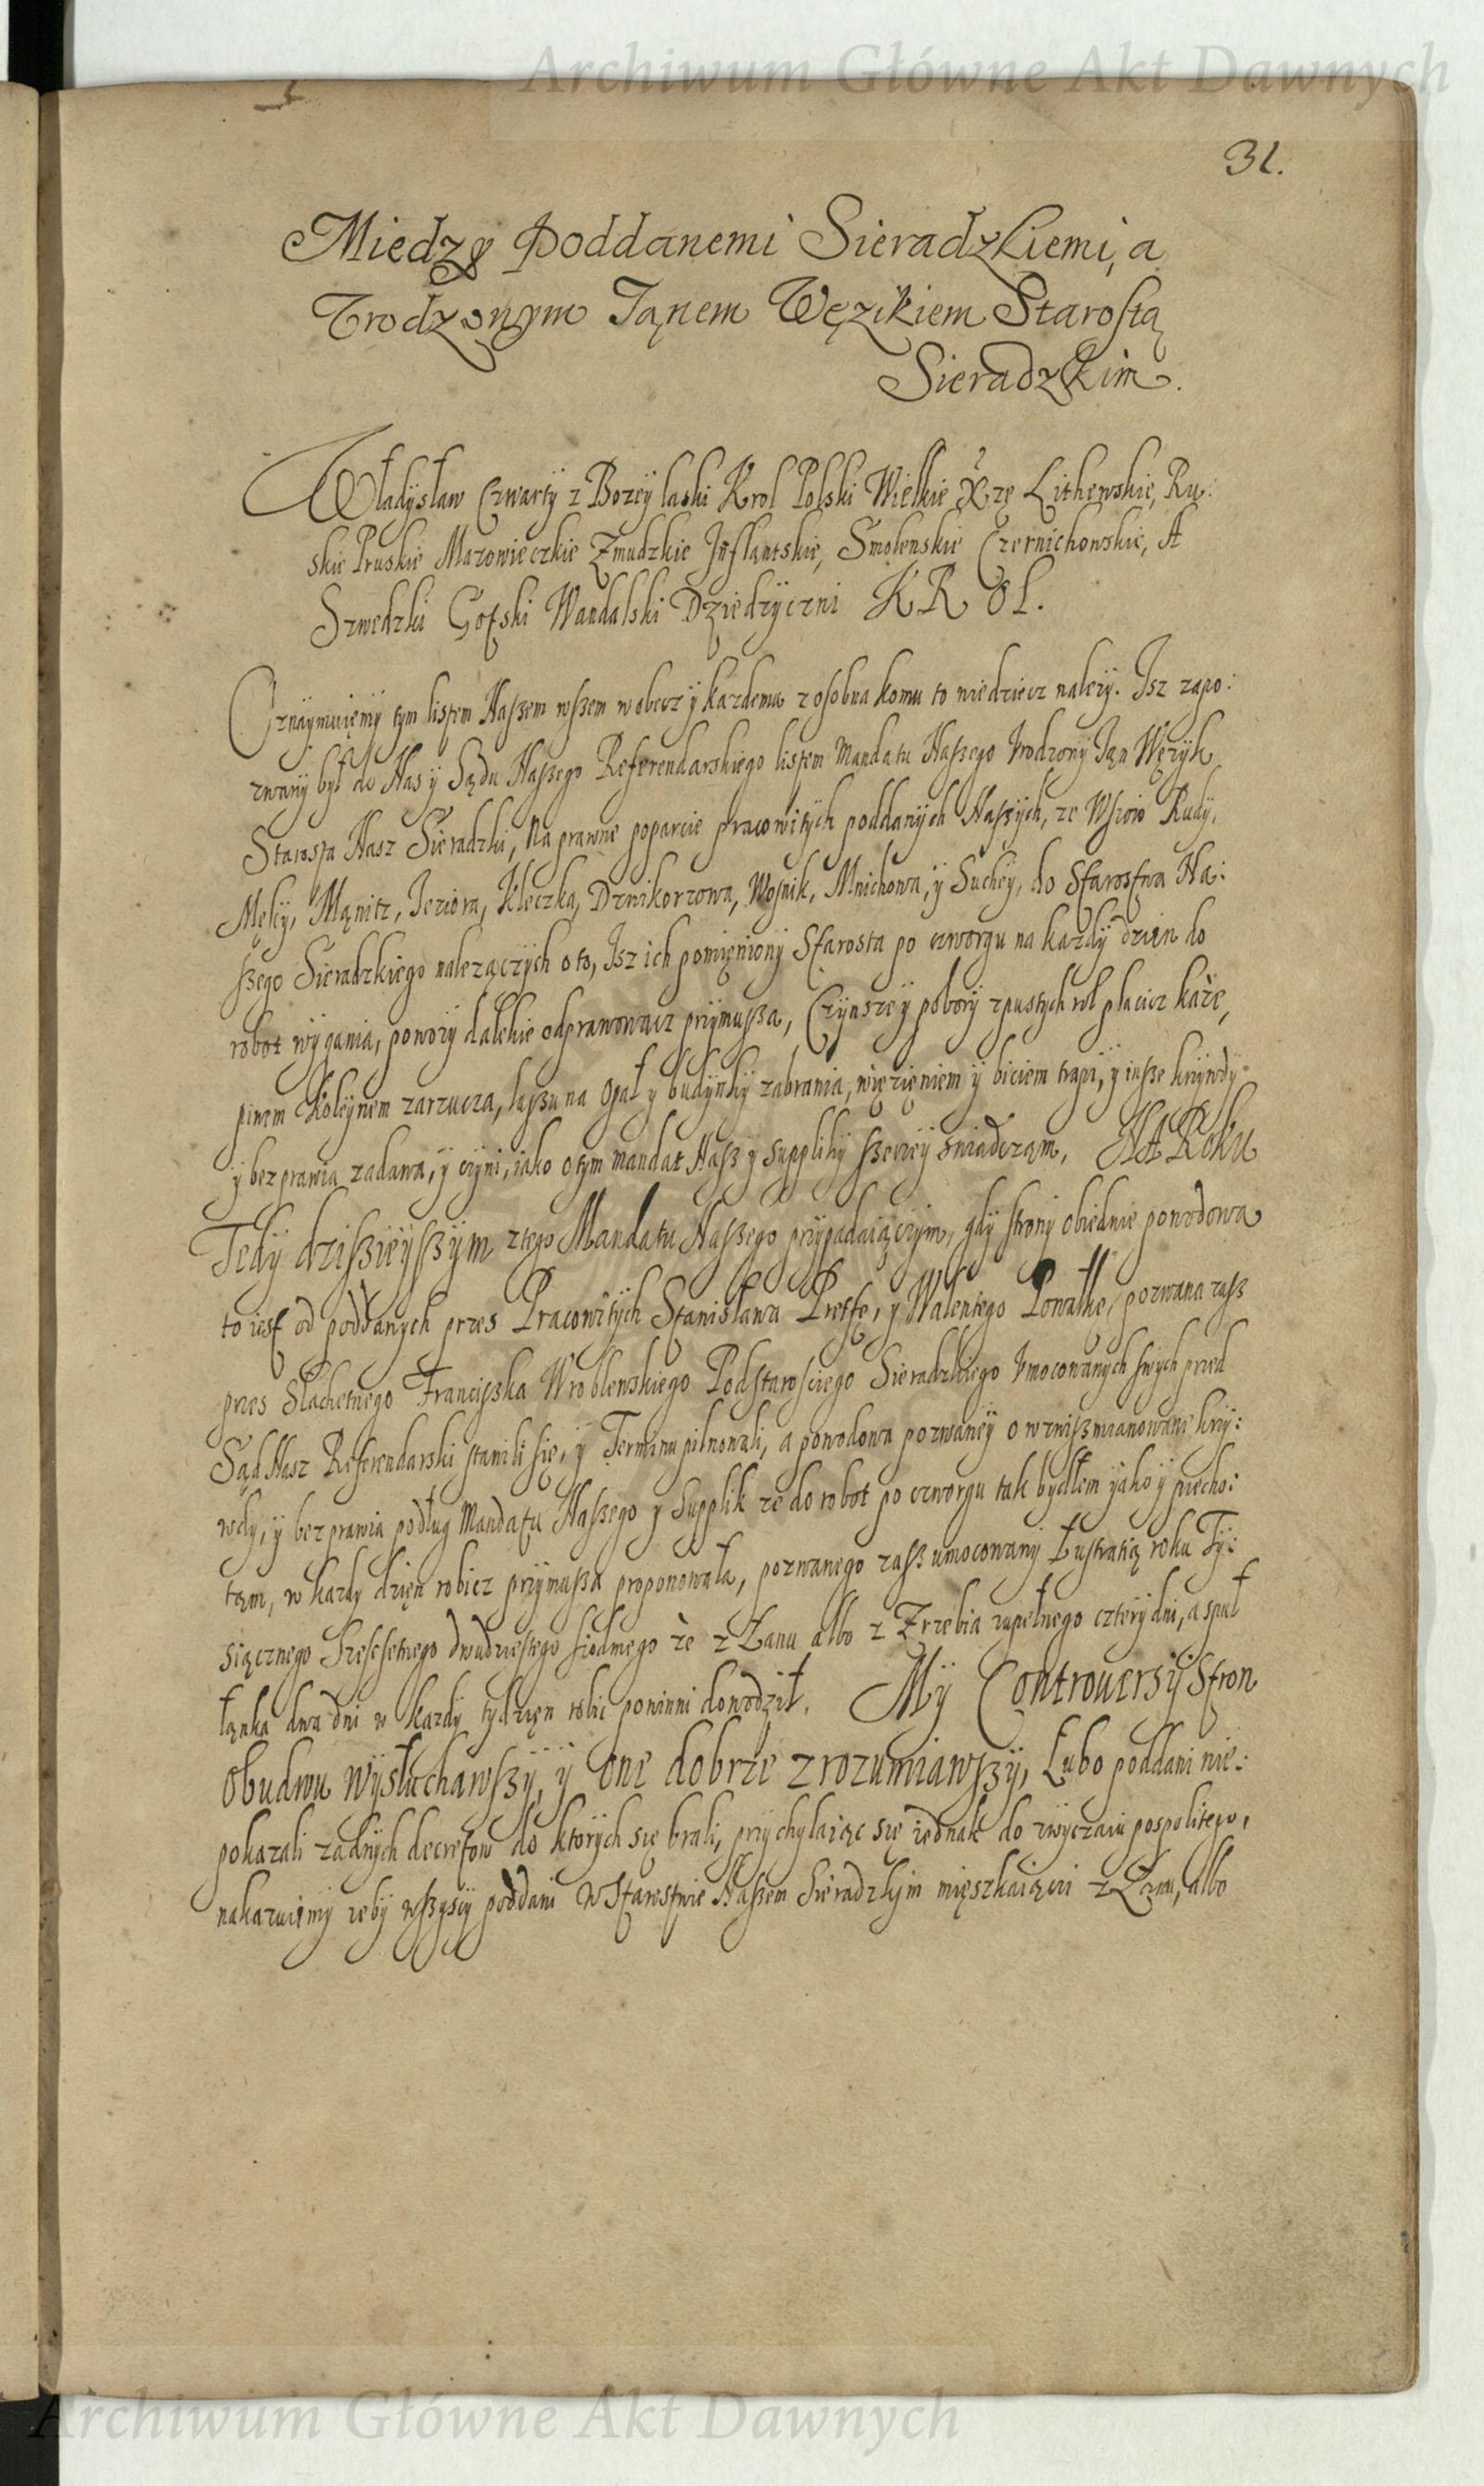 Archiwum Główne Akt Dawnych
31.
Miedzy Poddanemi Sieradzkiemi, a
Vrodzonym Janem Wężikiem Starostą
Sieradzkim.
Władysław Czwarty z Bozey laski Krol Polski Wielkie Xzę Lithewskie, Ru:
skie Pruskie Mazowieczkie Zmudzkie Jnflantskie, Smolenskie Czernichowskie, A
Szwedzki Gotski Wandalski Dziedzyczni KROL.
Oznaymuięmy tym listem Naszem wszem wobecz y kazdemu z osobna komu to wiedziecz nalezy. Isz zapo:
zwany był do Nas y Sądu Naszego Referendarskiego listem Mandatu Naszego Vrodzony Jąn Węzyk
Starosta Nasz Sieradzki, Na prawne poparcie pracowitych poddanych Naszych, ze Wsiow Rudy,
Męky, Mąnitz, Jeziora, Kłeczka, Dznikorzowa, Wosnik, Mnichowa, y Suchey, do Starostwa Na:
szego Sieradzkiego nalezączych o to, Isz ich pomięniony Starosta po czworgu na kazdy dzien do
robot wygania, powozy dalekie odprawowacz przymusza, Czynsze y pobory z pustych rol placicz każe,
piwem Koleynem zarzucza, lassu na Opał y budynky zabrania, więzięniem y biciem trapi, y insze krzywdy
y bezprawia zadawa, y czyni, iako o tym mandat Nasz y suppliky szerzey swiadczam, NA Roku
Tedy dzisieyszym z tego Mandatu Naszego przypadaiączym, gdy strony obiedwie powodowa
to iest od poddanych przes Pracowitych Stanisława y Walentego pozwana zasz
przes Slachetnego Franciszka Wroblewskiego Podstarosciego Sieradzkiego Vmocowanych swych przed
Sąd Nasz Referendarski stanili się, y Terminu pilnowali, a powodowa pozwaney o wzwisz mianowane krzy:
wdy, y bezprawia podług Mandatu Naszego y Supplik ze do robot po czworgu tak bydłem yako y piecho:
tąm, w kazdy dzięn robicz przymusza proponowała, pozwanego zasz umocowany Lustratią roku Ty:
siącznego Szescsetnego dwudziestego siodmego że z Łanu albo z Zrzebia zupełnego cztery dni, a z puł
łąnka dwa dni w kazdy tydzięn robic powinni dowodził. My Controuersÿ Stron
Obudwu wysłuchawszy, y one dobrze zrozumiawszy, Lubo poddani nie:
pokazali zadnych decretow do ktorych się brali, przychylaiąc się iednak do zwyczaiu pospolitego,
nakazuięmy zeby wszyscy poddani w Starostwie Naszem Sieradzkim mięszkaiączi z Łanu, albo
Archiwum Główne Akt Dawnych